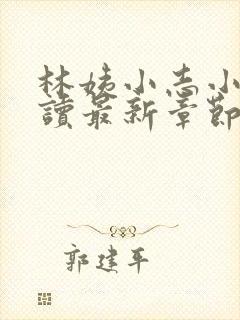 林姨小志小
讀最新章節
郭建平